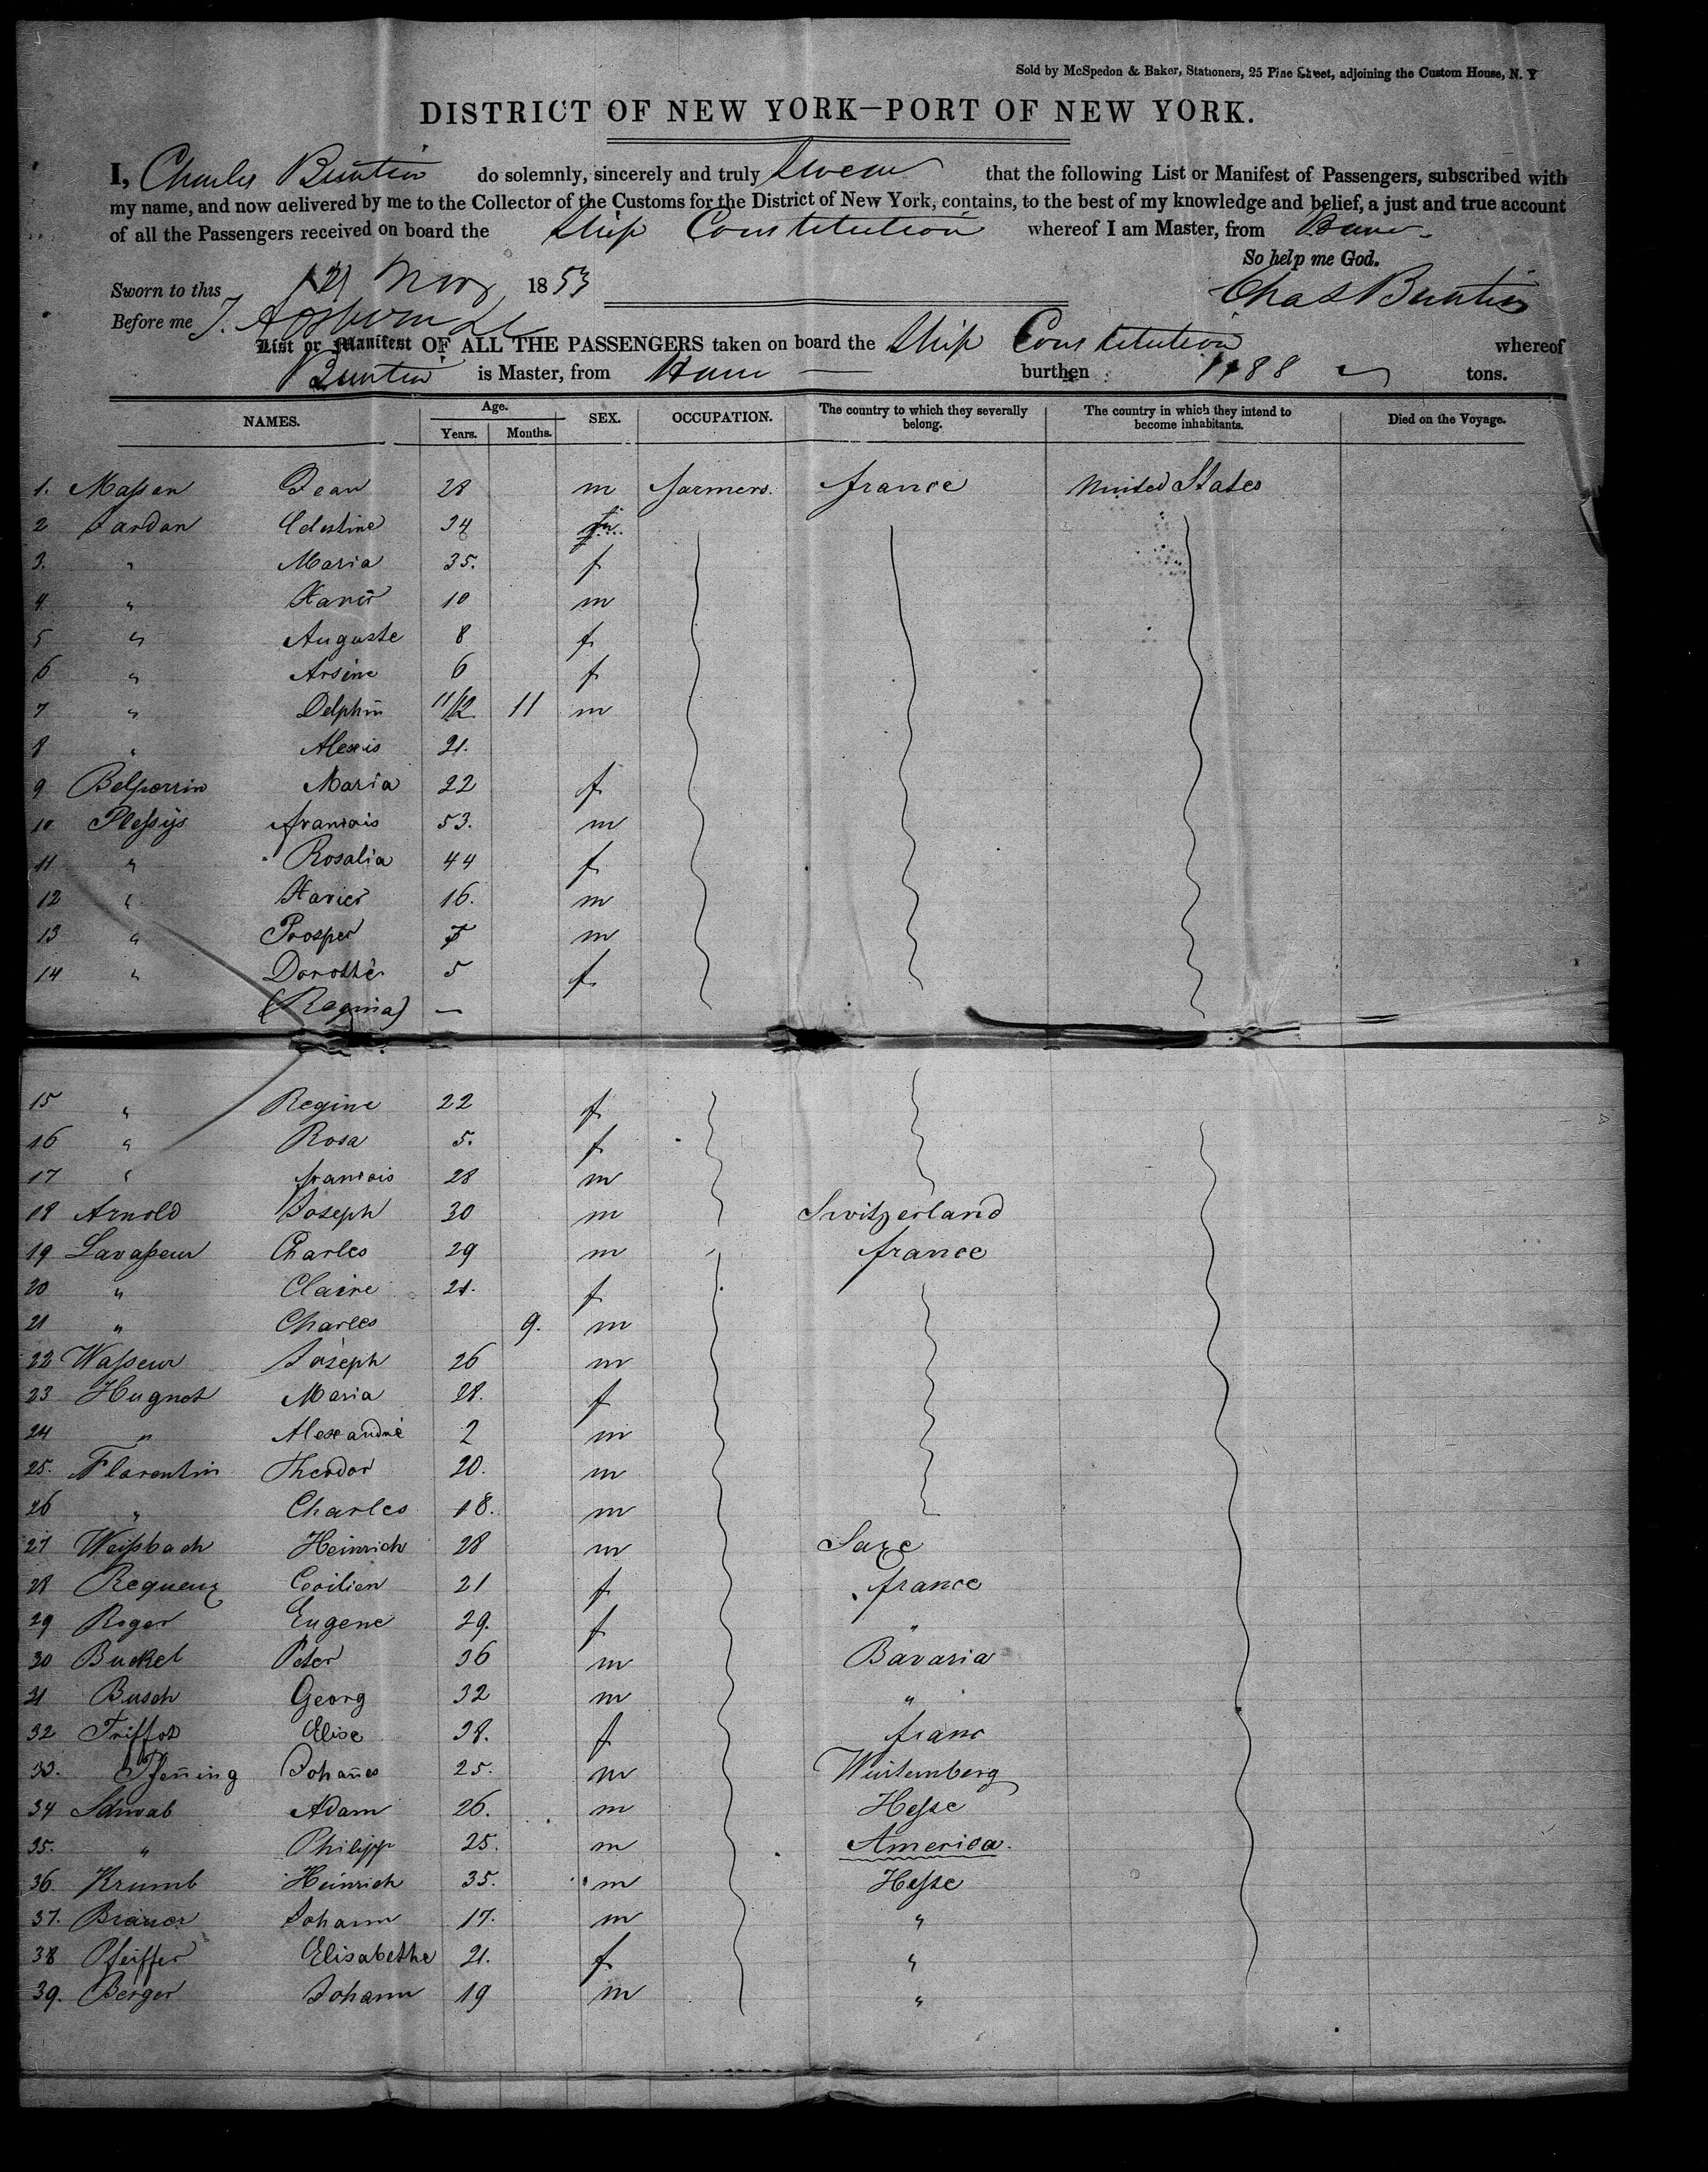 Sold by McSpedon & Baker, Stationers, 25 Pine Street, adjoining the Custom House, N. Y
DISTRICT OF NEW YORK—PORT OF NEW YORK.
I, Charles Buntin do solemnly, sincerely and truly Swear that the following List or Manifest of Passengers, subscribed with
my name, and now delivered by me to the Collector of the Customs for the District of New York, contains, to the best of my knowledge and belief, a just and true account
of all the Passengers received on board the Ship Constitution whereof I am Master, from
So help me God.
Sworn to this 12 Nov 1853 Chas Buntin
Before me
List or Manifest OF ALL THE PASSENGERS taken on board the Ship Constitution whereof
Buntin is Master, from burthen 1488 tons.
NAMES. Age. Years. Months. SEX. OCCUPATION. The country to which they severally belong. The country in which they intend to become inhabitants. Died on the Voyage.
1. Maßen Jean 28 m farmers. france United States
2 Jardan Celestine 34 f
3. " Maria 35. f
4 " Xavier 10 m
5 " Auguste 8 f
6 " Arsène 6 f
7 " Delphin 11/12 11 m
8 " Alexis 21.
9 Belperrin Maria 22 f
10 Pleßys francois 53. m
11 " Rosalia 44 f
12 " Xavier 16. m
13 " Prosper 7 m
14 " Dorothé 5 f
(Regina) —
15 " Regine 22 f
16 " Rosa 5. f
17 " francois 28 m
18 Arnold Joseph 30 m Switzerland
19 Lavaßeur Charles 29 m france
20 " Claire 21. f
21 " Charles 9. m
22 Waßeur Joseph 26 m
23 Hugnot Maria 28. f
24 " Alexandre 2 m
25. Florentin Theodor 20. m
26 " Charles 18. m
27 Weißbach Heinrich 28 m Saxe
28 Requeux Cecilien 21 f france
29 Roger Eugene 29. f "
30 Buckel Peter 36 m Bavaria
31 Busch Georg 32 m "
32 Triffot Elise 38. f franc
33. Pfen̄ing Johan̄es 25. m Würtemberg
34 Schwab Adam 26. m Heße
35. " Philipp 25. m America.
36. Krumb Heinrich 35. m Heße
37. Brauer Johann 17. m "
38 Pfeiffer Elisabethe 21. f "
39. Berger Johann 19 m "